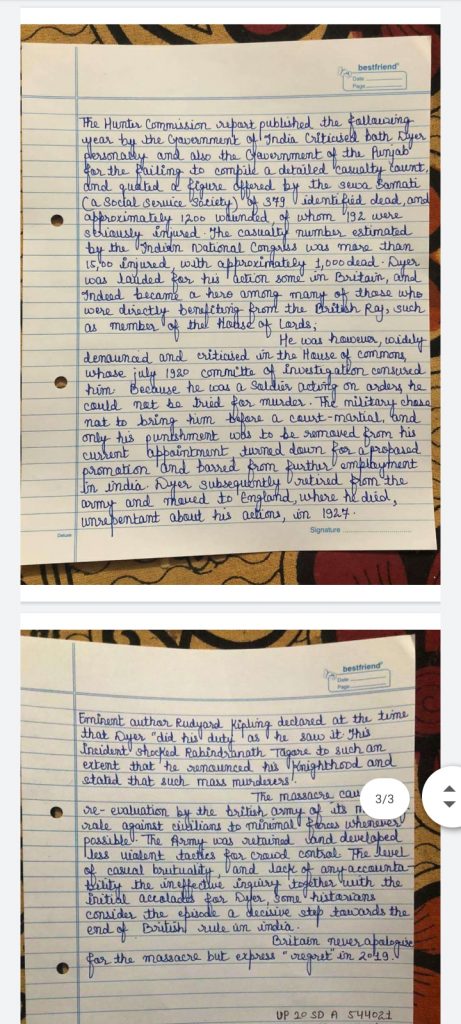 bestfriend
Date
Page
The Hunter Commission report published the following
year by the Government of India Criticised both Dyer
personally and also the Government of the Punjab
for the failing to compile a detailed casualty count,
and quoted a figure offered by the sewa Samati
(a Social Service Society) of 379 identified dead, and
approximately 1200 wounded, of whom 192 were
seriously injured. The casualty number estimated
by the Indian National Congress was more than
15,00 injured, with approximately 1,000 dead. Dyer
was lauded for his action some in Britain, and
Indeed became a hero among many of those who
were directly benefiting from the British Raj, such
as member of the House of Lords;
He was however, widely
denounced and criticised in the House of commons,
whose july 1920 committe of investigation censured
him. Because he was a Soldier acting on orders he
could not be tried for murder. The military chose
not to bring him before a court-martial, and
only his punishment was to be removed from his
current appointment turned down for a proposed
promotion and barred from further employment
in india. Dyer subsequently retired from the
army and moved to England, where he died,
unrepentant about his actions, in 1927.
Signature
Deluxe
bestfriend
Date
Page
Eminent author Rudyard Kipling declared at the time
that Dyer "did his duty as he saw it. This
incident shocked Rabindranath Tagore to such an
extent that he renounced his Knighthood and
stated that such mass murderers".
The massacre cau
3/3
re-evaluation by the british army of its
rale against civilians to minimal forces whenever
possible. The Army was retained and developed
less violent tactics for crowd control. The level
of casual brutuality, and lack of any accounta-
bility the ineffective inquiry together with the
initial accolades for Dyer, some historians
consider the episode a decisive step towards the
end of British rule in india.
Britain never apologise
for the massacre but express "regret" in 2019.
UP 20 SD A 544021